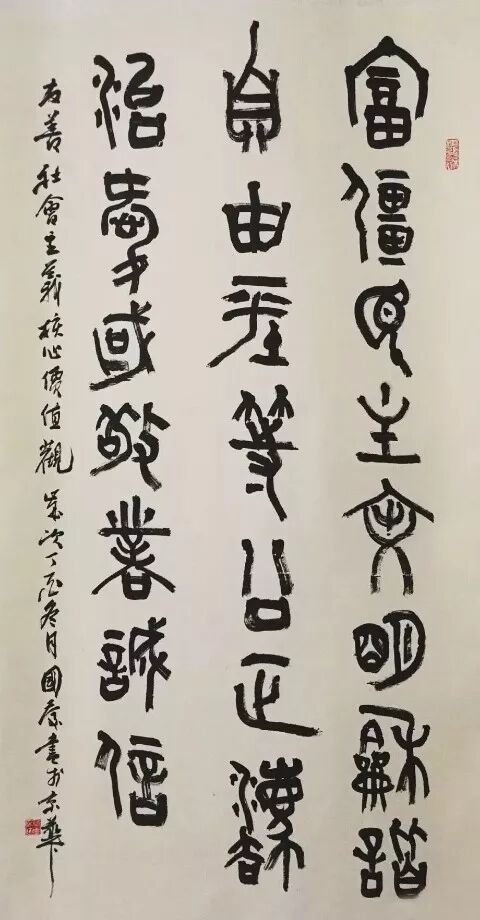 富彊民主文明龢諧
自由平等公正灋
治愛國敬業誠信
友善社會主義核心價值觀 歲次丁酉冬月國泰書於京華